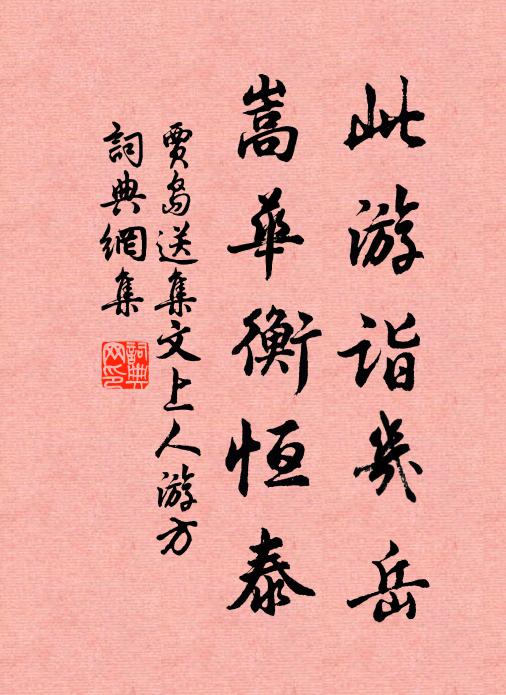 此游詣幾岳
嵩華衡恒泰
賈島送集文上人游方
詞典網集
詞典網印